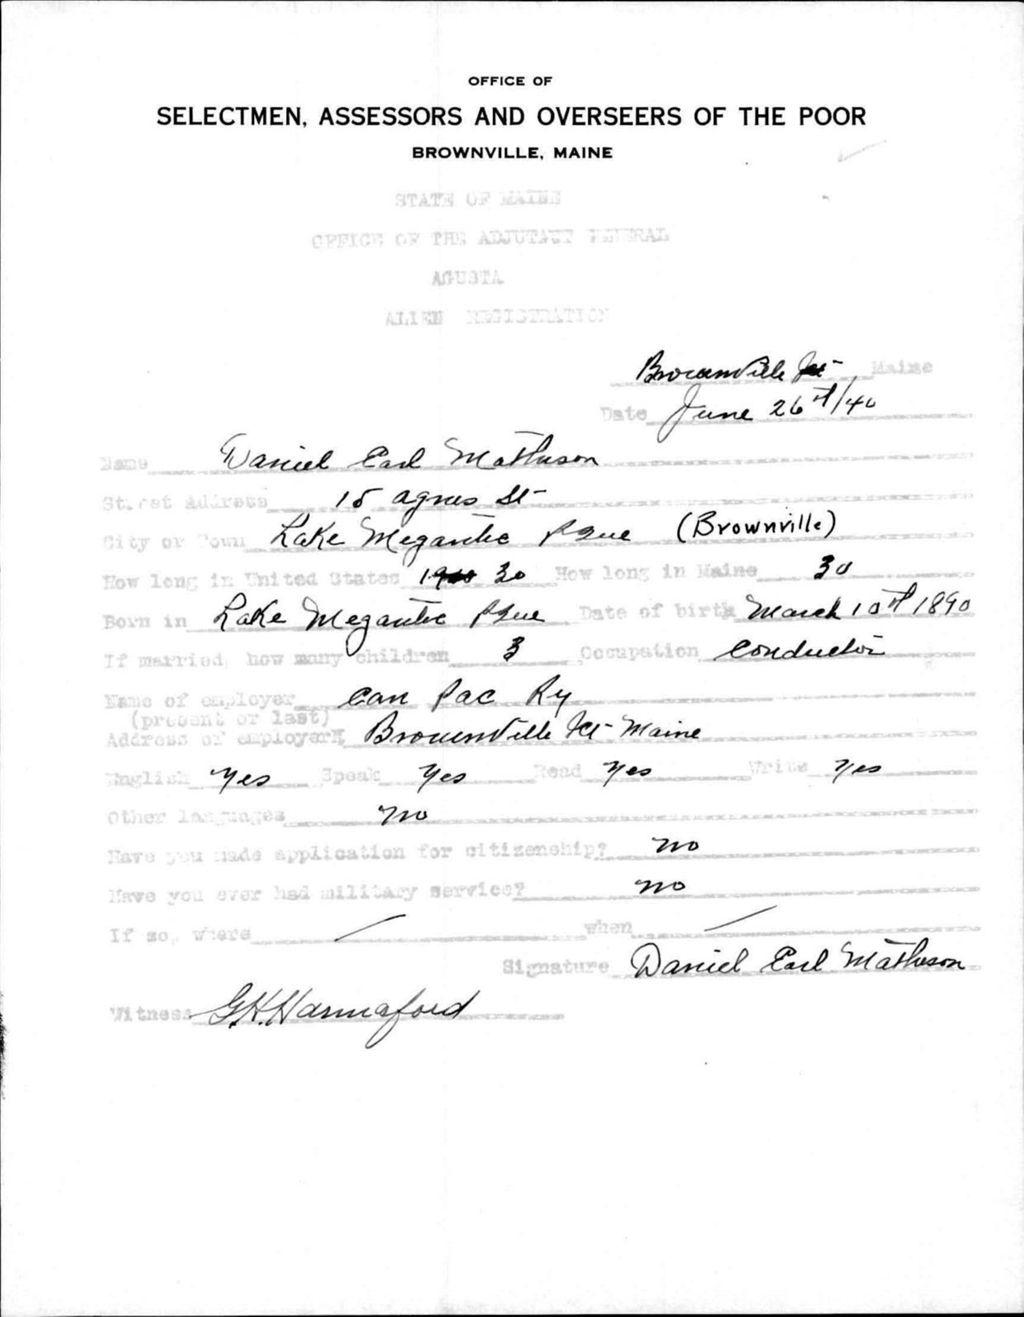 OFFICE OF
SELECTMEN, ASSESSORS AND OVERSEERS OF THE POOR
BROWNVILLE, MAINE
STATE OF MAINE
OFFICE OF THE ADJUTANT GENERAL
AGUSTA
ALIEN REGISTRATION
Brownville Jct- Maine
Date June 26th/40
Name Daniel Earl Matheson
Street Address 15 Agnes St-
City or Town Lake Megantic PQue (Brownville)
How long in United States 30 How long in Maine 30
Born in Lake Megantic PQue Date of birth March 10th 1890
If married, how many children 3 Occupation Conductor
Name of employer Can Pac Ry
(present or last)
Address of employer Brownville Jct- Maine
English Yes Speak Yes Read Yes Write Yes
Other languages no
Have you made application for citizenship? no
Have you ever had military service? no
If so, where / when /
Signature Daniel Earl Matheson
Witness G.H. Hannaford